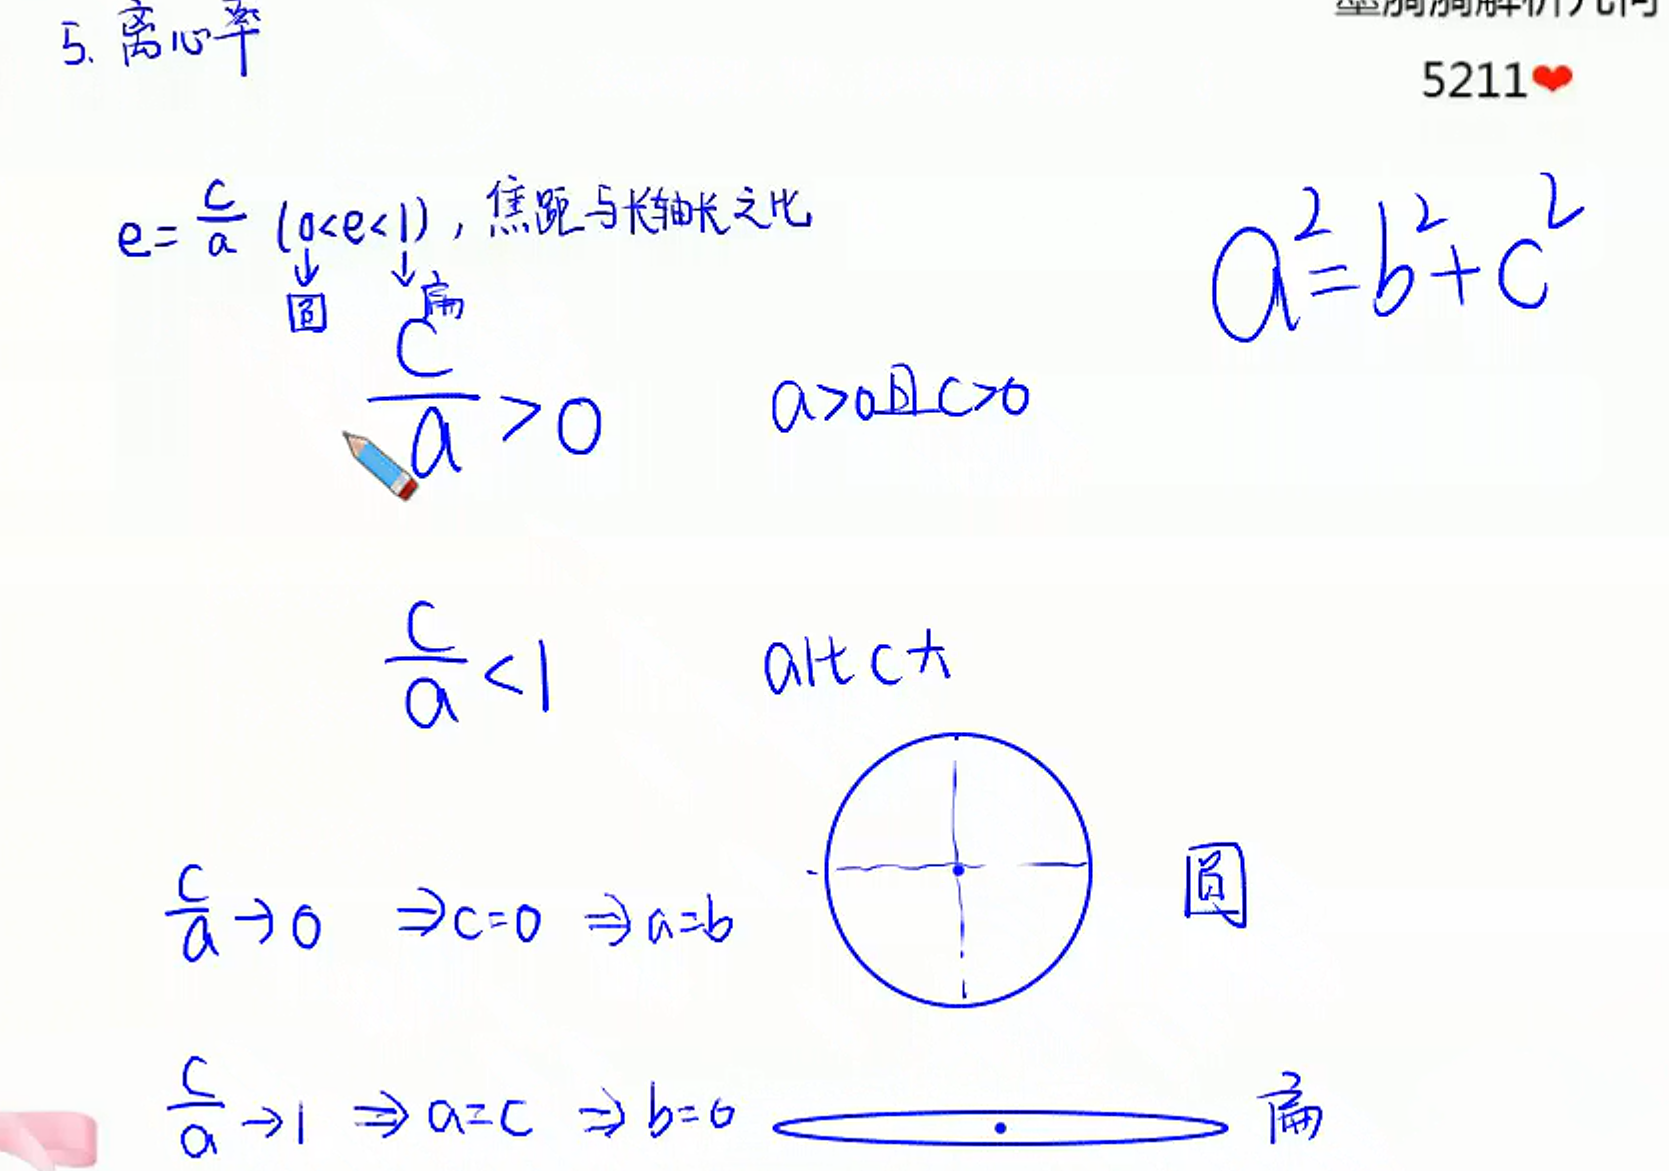 5. 离心率
5211❤
e = c/a (0<e<1), 焦距与长轴长之比
↓ ↓
圆 扁
a² = b² + c²
c/a > 0 a>0且c>0
c/a < 1 a比c大
c/a → 0 ⇒ c=0 ⇒ a=b 圆
c/a → 1 ⇒ a=c ⇒ b=0 扁